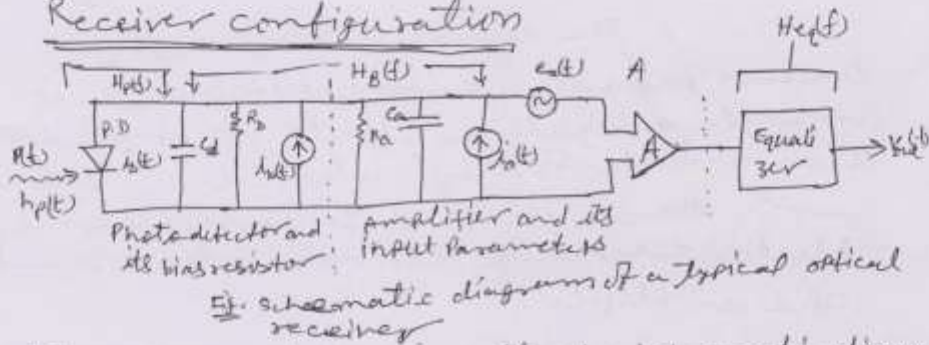 Receiver configuration
Heq(f)
Hp(f) HB(f) es(t) A
P.D is(t) Cd Rb ib(t) Ra Ca ia(t) A Equali
zer
P(t)
hp(t)
Photodetector and
its bias resistor
Amplifier and its
input Parameters
Fig. schematic diagram of a Typical optical
receiver